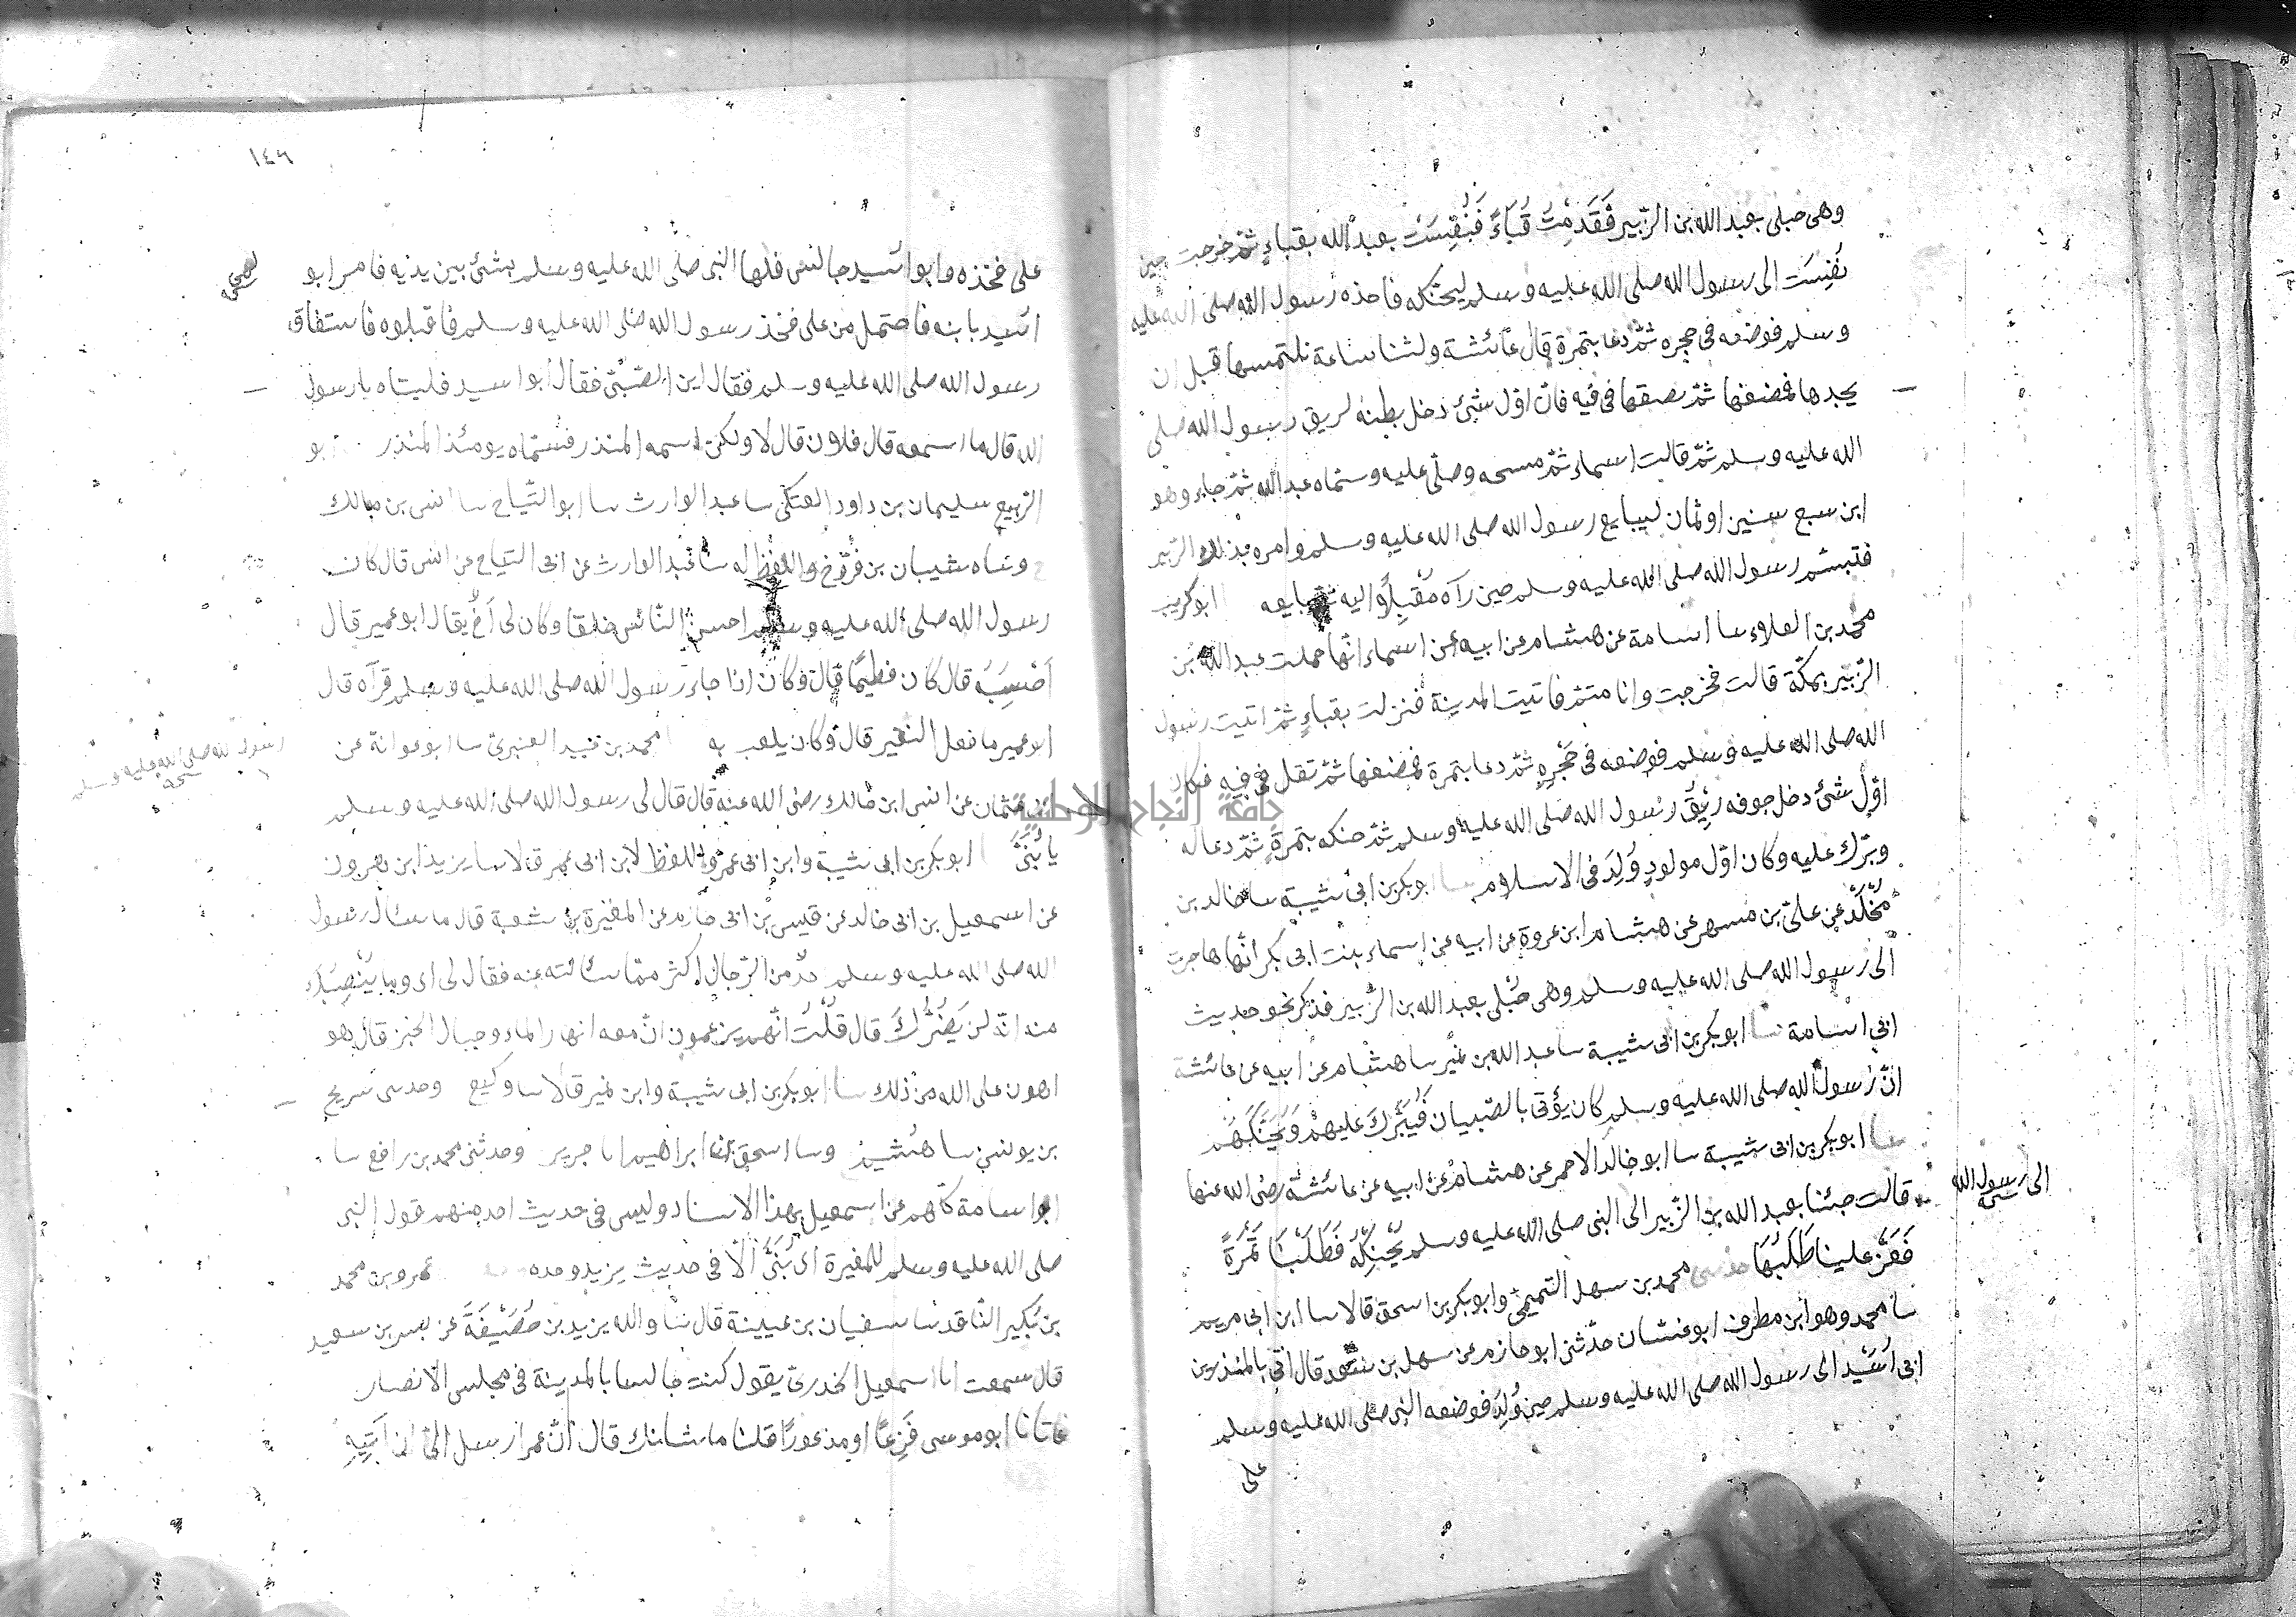 وهى حبلى بعبد الله بن الزبير فَقَدِمَتْ قُبَاءً فَنُفِسَتْ بعبد الله بقباءٍ ثمّ خرجت حين
نُفِسَت الى رسول الله صلى الله عليه وسلم ليحنكه فاخذه رسول الله صلى الله عليه
وسلم فوضعه فى حجره ثمّ دعا بتمرة قال عائشة ولثنا ساعة نلتمسها قبل ان
يجدها فمضغها ثمّ بصقها فى فيه فان اوّل شئ دخل بطنه لريق رسول الله صلى
الله عليه وسلم ثمّ قالت اسماء ثمّ مسحه وصلّى عليه وسمّاه عبد الله ثمّ جاء وهو
ابن سبع سنين او ثمان ليبايع رسول الله صلى الله عليه وسلم وامره بذلك الزبير
فتبسّم رسول الله صلى الله عليه وسلم حين رآه مُقْبِلًا اليه ثمّ بايعه ابو كريب
محمّد بن العلاء سا اسامة عن هشام عن ابيه عن اسماء انّها حملت عبد الله بن
الزّبير بمكّة قالت فخرجت وانا متمّ فاتيت المدينة فنزلت بقباءٍ ثمّ اتيت رسول
الله صلى الله عليه وسلم فوضعه فى حَجْرِهِ ثمّ دعا بتمرة فمضغها ثمّ تفل فى فِيهِ فكان
اوّل شئ دخل جوفه رِيْقُ رسول الله صلى الله عليه وسلم ثمّ حنكه بتمرةٍ ثمّ دعا له
وبرّك عليه وكان اوّل مولودٍ وُلِدَ فى الاسلام سا ابو بكر بن ابى شيبة سا خالد بن
مُخَلَّد عن علىّ بن مسهر عن هشام ابن عروة عن ابيه عن اسماء بنت ابى بكر انّها هاجرت
الى رسول الله صلى الله عليه وسلم وهى حُبْلى بعبد الله بن الزّبير فذكر نحو حديث
ابى اسامة سا ابو بكر بن ابى شيبة سا عبد الله بن نمير سا هشام عن ابيه عن عائشة
انّ رسول الله صلى الله عليه وسلم كان يؤتى بالصّبيان فَيُبَرِّكَ عليهمْ وَيُحَنِّكُهُم
سا ابو بكر بن ابى شيبة سا ابو خالد الاحمر عن هشام عن ابيه عن عائشة رضى الله عنها
قالت جئنا بعبد الله بن الزّبير الى النبى صلى الله عليه وسلم يُحَنِّكُهُ فَطَلَبْنَا تَمْرَةً
الى رسول الله
فَعَزَّ علينا طَلَبُهَا حدثنى محمد بن سهل التميمىّ وابو بكر بن اسحق قالا سا ابن ابى مريم
سا محمد وهو ابن مطرف ابو غسّان حدّثنى ابو حازم عن سهل بن سعد قال اتى بالمنذر بن
ابى اُسَيْد الى رسول الله صلى الله عليه وسلم حين وُلِدَ فوضعه النبى صلى الله عليه وسلم
على
١٤٦
على فخذه وابو اسيد جالس فلها النبى صلّى الله عليه وسلم بشئ بين يديه فامر ابو
اسيد بابنه فاحتمل من على فخذ رسول الله صلى الله عليه وسلم فاقبلوه فاستفاق
رسول الله صلى الله عليه وسلم فقال اين الصّبىّ فقال ابو اسيد قلبناه يا رسول
الله قال ما اسمه قال فلان قال لا ولكن اسمه المنذر فسمّاه يومئذ المنذر ابو
الربيع سليمان بن داود العتكى سا عبد الوارث سا ابو التّياح سا انس بن مالك
وساه شيبان بن فرّوخ واللفظ له سا عبد الوارث عن ابى التياح عن انس قال كان
رسول الله صلى الله عليه وسلم احسن النّاس خلقا وكان لى اَخٌ يقال ابو عمير قال
اَحْسِبُهُ قال كان فطيمًا قال وكان اذا جاء رسول الله صلى الله عليه وسلم قرآه قال
ابو عمير ما فعل النغير قال وكان يلعب به محمد بن عبيد العنبرىّ سا ابو عوانة عن
رسول الله صلى الله عليه وسلم
ابى عثمان عن انس ابن مالك رضى الله عنه قال قال لى رسول الله صلى الله عليه وسلم
يا بُنَىَّ ابو بكر بن ابى شيبة وابن ابى عمر واللفظ لابن ابى عمر قالا سا يزيد ابن هرون
عن اسمعيل بن ابى خالد عن قيس بن ابى حازم عن المغيرة بن شعبة قال ما سئال رسول
الله صلى الله عليه وسلم حدٌ من الدّجال اكثر ممّا سئالته عنه فقال لى اى وما يُنْصِبُك
منه انّه لن يَضُرَّكَ قال قُلْتُ انّهم يزعمون انّ معه انهار الماء وجبال الخبز قال هو
اهون على الله من ذلك سا ابو بكر بن ابى شيبة وابن نمير قالا سا وكيع وحدسى سريج
بن يونس سا هُشَيم وسا اسحق ابن ابراهيم انا جرير وحدثنى محمد بن رافع سا
ابو اسامة كلّهم عن اسمعيل بهذا الاسناد وليس فى حديث احد منهم قول النبى
صلى الله عليه وسلم للمغيرة اى بُنَىَّ الّا فى حديث يزيد وحده عمرو بن محمد
بن بُكير النّاقد سا سفيان بن عيينة قال سا والله يزيد بن خُصَيْفَةَ عن بسر بن سعيد
قال سمعت ابا سمعيل الخدرى يقول كنت جالسا بالمدينة فى مجلس الانصار
فاتانا ابو موسى فَزِعًا او مذعورًا قلنا ما شانك قال انّ عمر ارسل الىّ ان آتِيَهِ
جامعة النجاح الوطنية